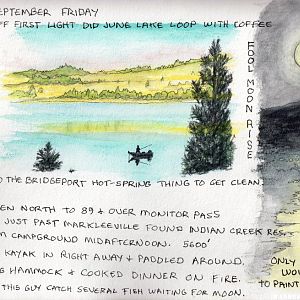 SEPTEMBER FRIDAY
FF FIRST LIGHT DID JUNE LAKE LOOP WITH COFFEE
FOOL MOON RISE
O THE BRIDGEPORT HOT-SPRING THING TO GET CLEAN.
EN NORTH TO 89 & OVER MONITOR PASS
JUST PAST MARKLEEVILLE FOUND INDIAN CREEK RES.
M CAMPGROUND MIDAFTERNOON. 5600'
KAYAK IN RIGHT AWAY & PADDLED AROUND.
G HAMMOCK & COOKED DINNER ON FIRE.
THIS GUY CATCH SEVERAL FISH WAITING FOR MOON.
ONLY
WOU
TO PAINT